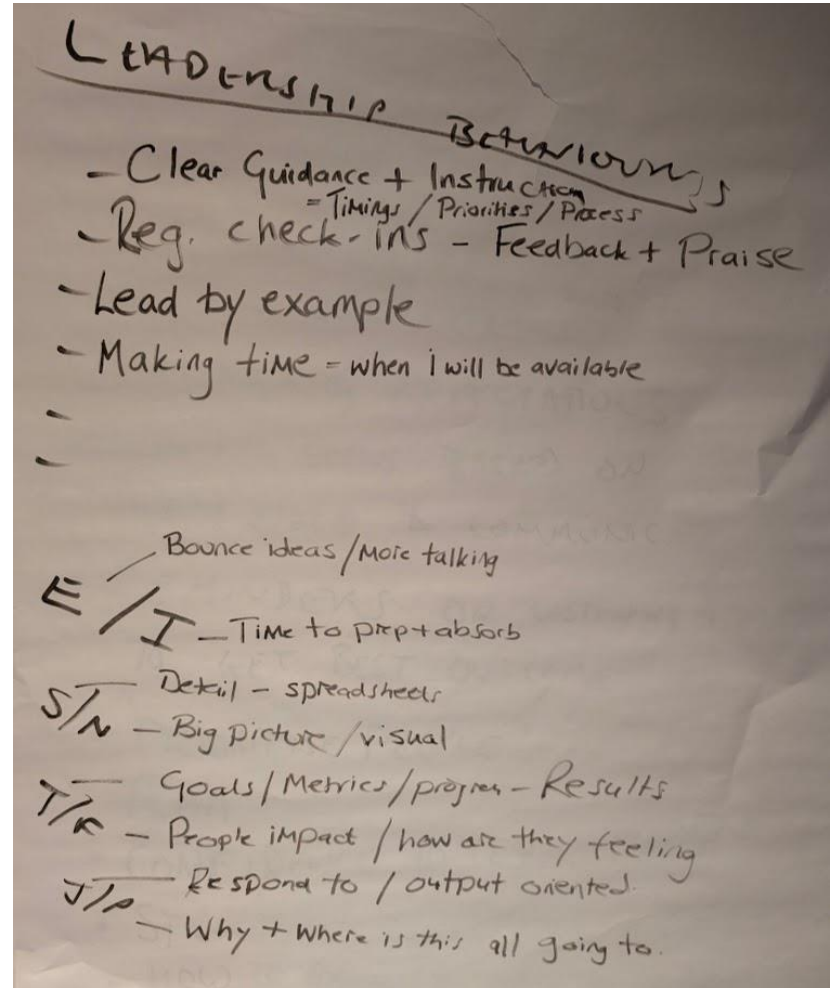 LEADERSHIP BEHAVIOURS
- Clear Guidance + Instruction
= Timings / Priorities / Process
- Reg. check-ins - Feedback + Praise
- Lead by example
- Making time = when i will be available
-
-
Bounce ideas / More talking
E / I - Time to prep + absorb
Detail - spreadsheets
S/N - Big picture / visual
Goals / Metrics / progress - Results
T/F - People impact / how are they feeling
J/P Respond to / output oriented.
- Why + where is this all going to.